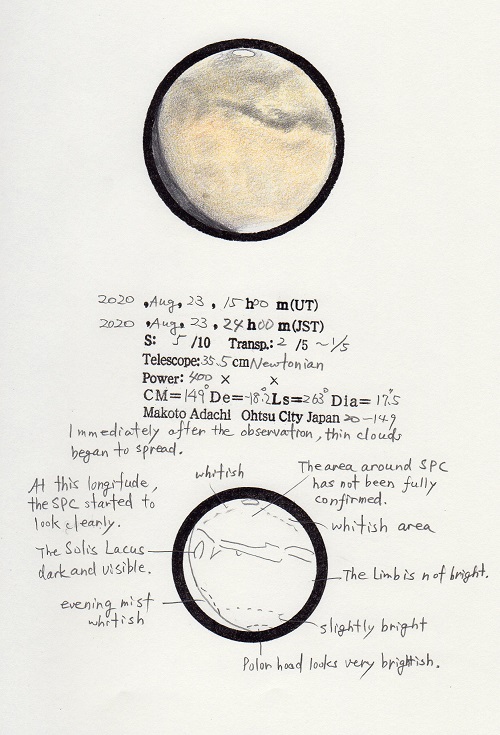 2020 , Aug , 23 , 15 h 00 m (UT)
2020 , Aug , 23 , 24 h 00 m (JST)
S: 5 /10 Transp.: 2 /5 ~1/5
Telescope: 35.5 cm Newtonian
Power: 400 × ×
CM=149° De=-18.2° Ls=263° Dia=17.5"
Makoto Adachi Ohtsu City Japan 20-149
Immediately after the observation, thin clouds
began to spread.
At this longitude,
the SPC started to
look clearly.
whitish
The area around SPC
has not been fully
confirmed.
whitish area
The Solis Lacus
dark and visible.
The Limb is not bright.
evening mist
whitish
slightly bright
Polor hood looks very brightish.